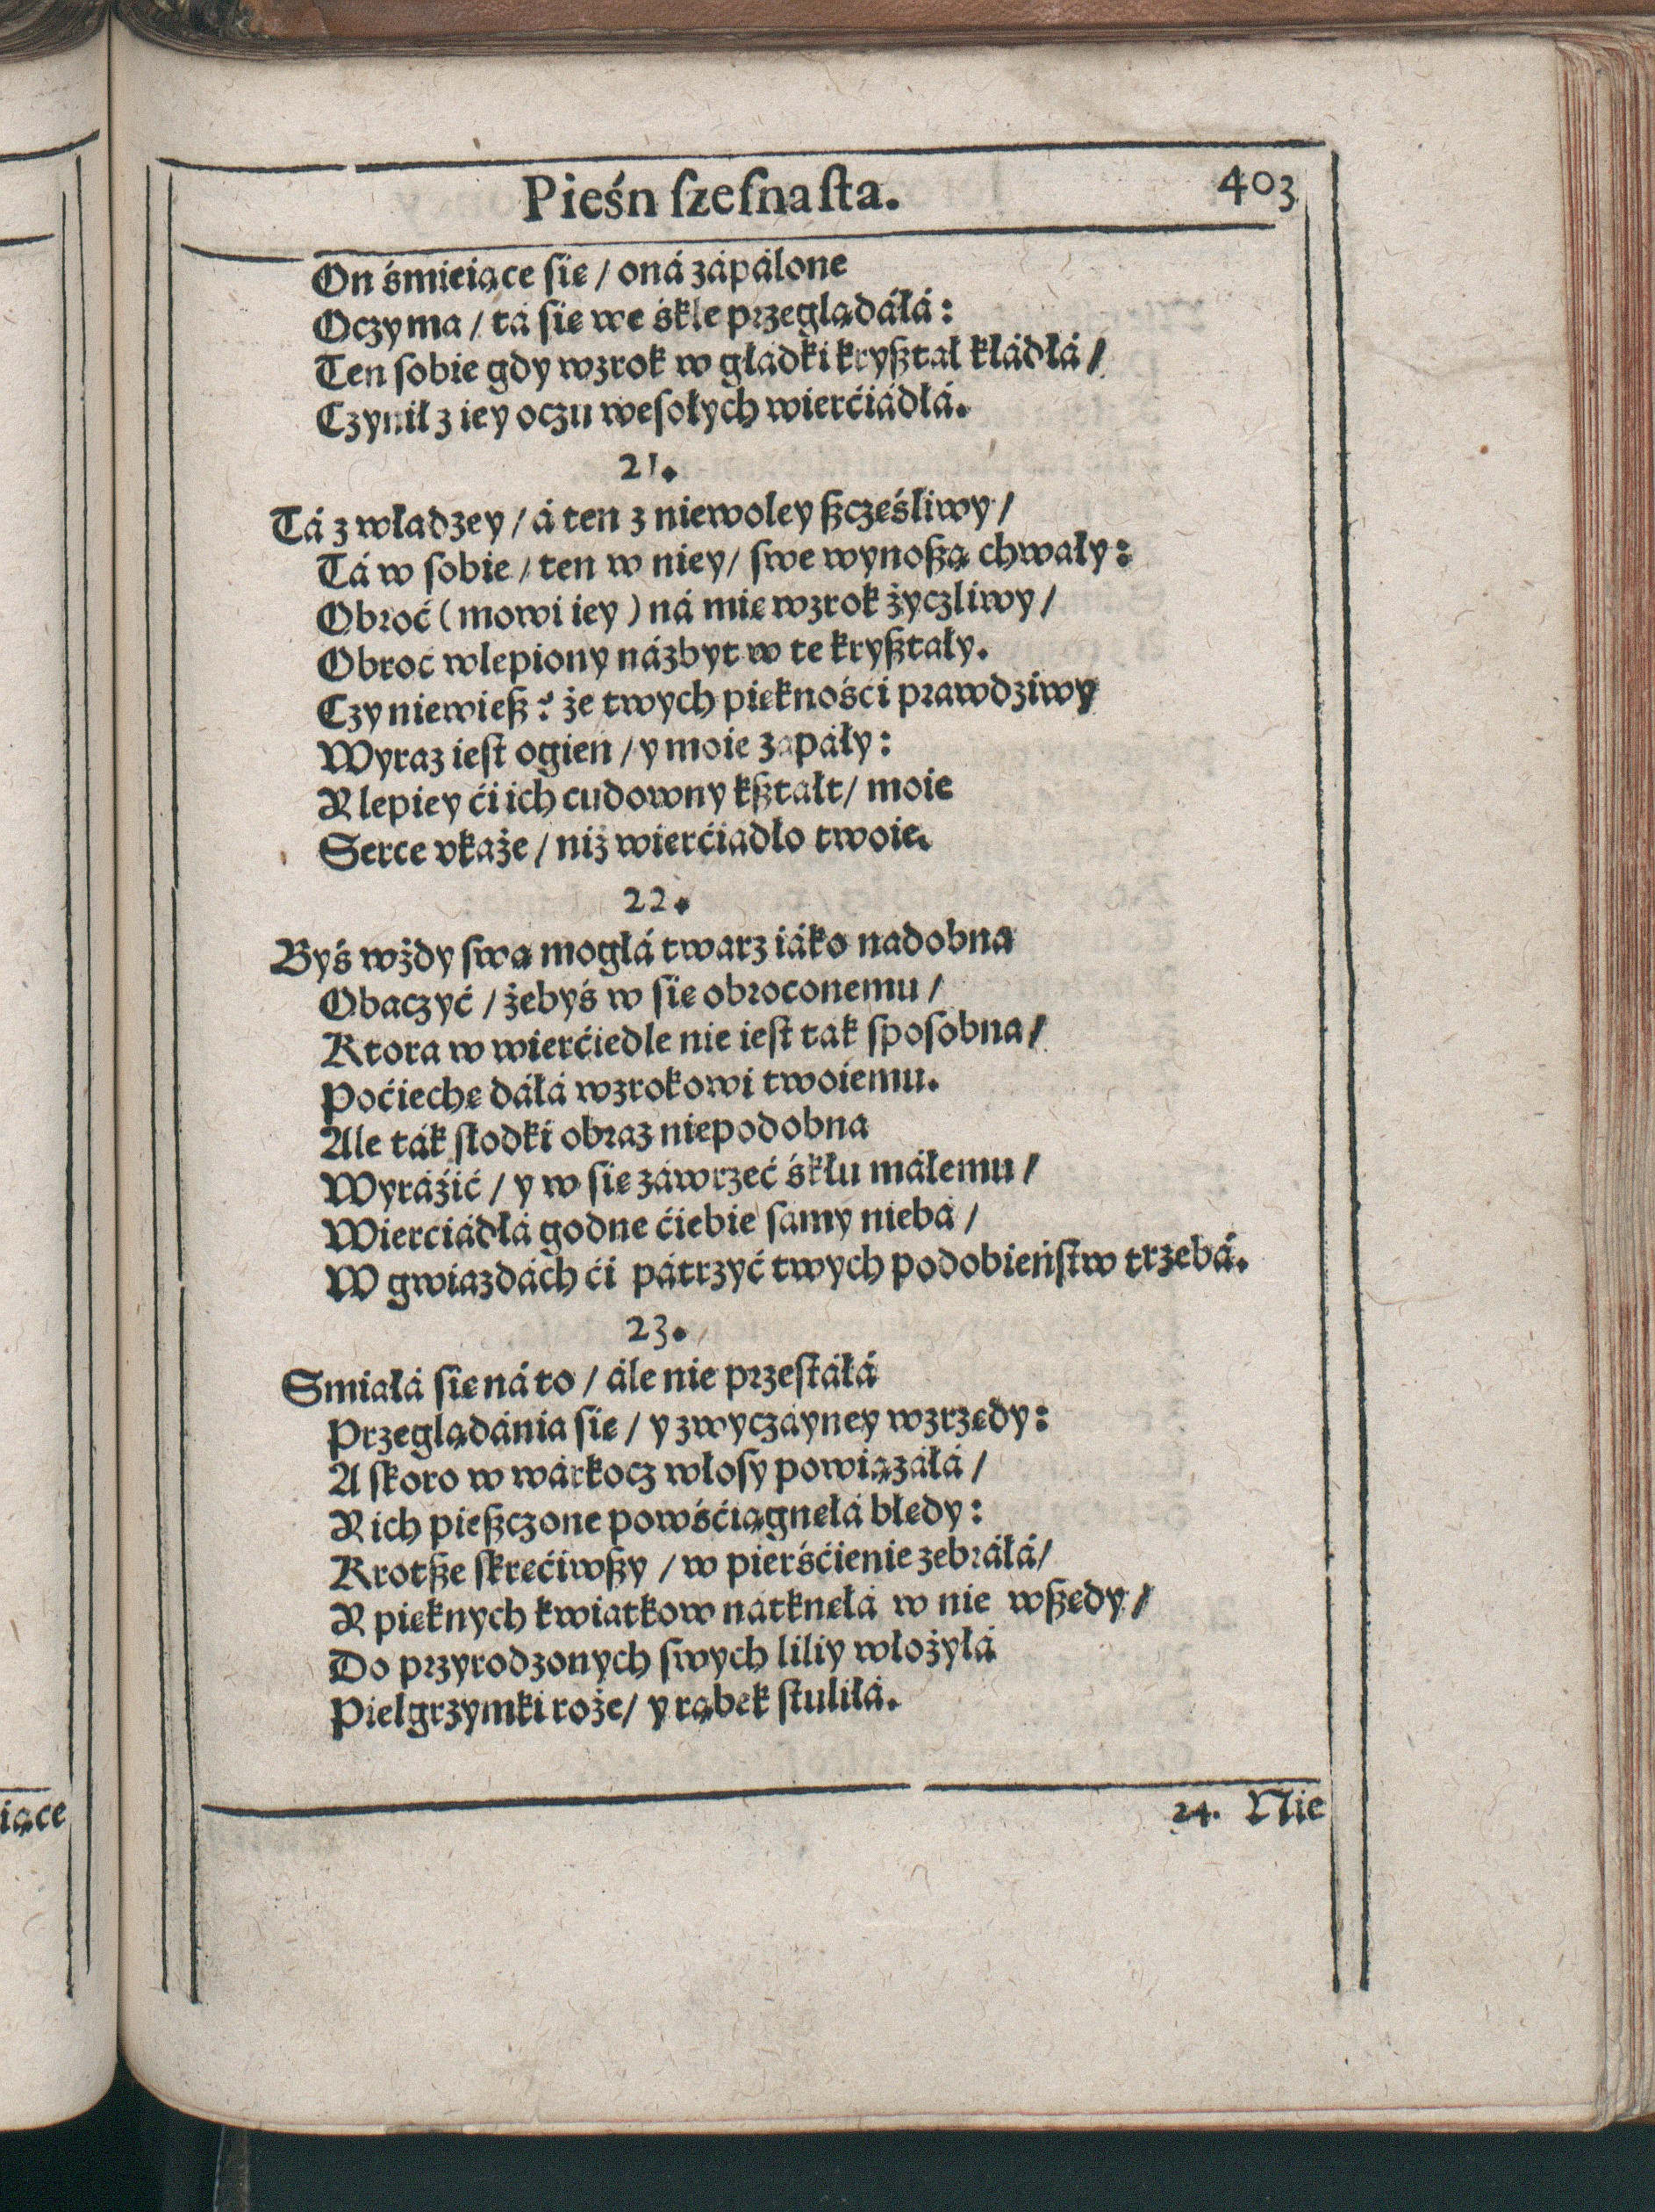 Pieśń ſzeſnaſta. 403
On śmieiące ſię / oná zápalone
Oczyma / tá ſię we śkle przeglądáłá:
Ten ſobie gdy wzrok w głádki kryßtał kłádłá /
Czynił z iey oczu weſołych wierćiádłá.
21.
Tá z władzey / á ten z niewoley ßczęśliwy /
Tá w ſobie / ten w niey / ſwe wynoßą chwały:
Obroć (mowi iey) ná mię wzrok życzliwy /
Obroć wlepiony názbyt w te kryßtały.
Czy niewieß? że twych pięknośći prawdziwy
Wyraz ieſt ogień / y moie zapały:
Y lepiey ći ich cudowny kßtałt / moie
Serce vkaże / niż wierćiadło twoie.
22.
Byś wżdy ſwą mogłá twarz iáko nadobna
Obaczyć / żebyś w ſię obroconemu /
Ktora w wierćiedle nie ieſt tak ſpoſobna /
Poćiechę dáłá wzrokowi twoiemu.
Ale ták ſłodki obraz niepodobna
Wyráźić / y w ſię záwrzeć śkłu máłemu /
Wierciádłá godne ćiebie ſámy niebá /
W gwiazdách ći pátrzyć twych podobieńſtw trzebá.
23.
Smiałá ſię ná to / ále nie przeſtáłá
Przeglądánia ſię / y zwyczáyney wzrzędy:
A ſkoro w wárkocz włoſy powiązáłá /
Y ich pießczone powśćiągnęłá błędy:
Krotße ſkręćiwßy / w pierśćienie zebráłá /
Y pięknych kwiatkow nátknęłá w nie wßędy /
Do przyrodzonych ſwych liliy włożyłá
Pielgrzymki rożę / y rąbek ſtuliłá.
24. Nie
iące